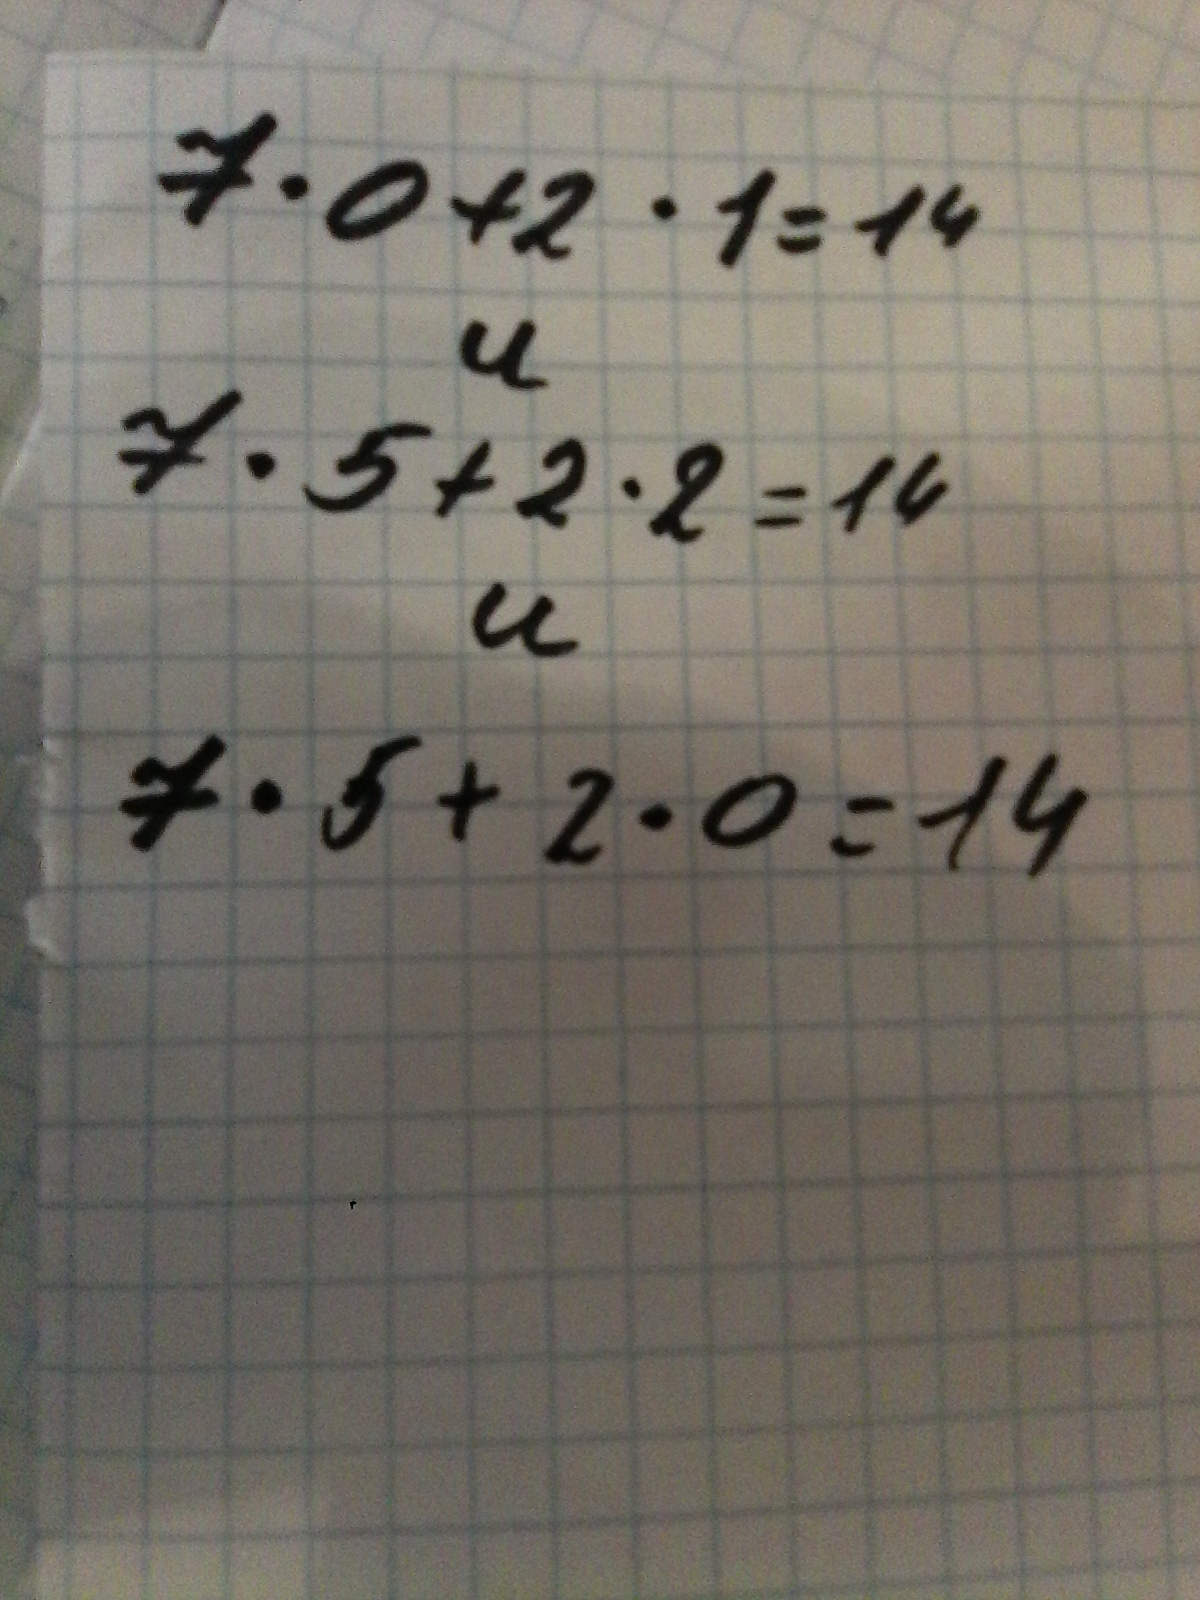 7·0+2·1=14
и
7·5+2·2=14
и
7·5+2·0=14